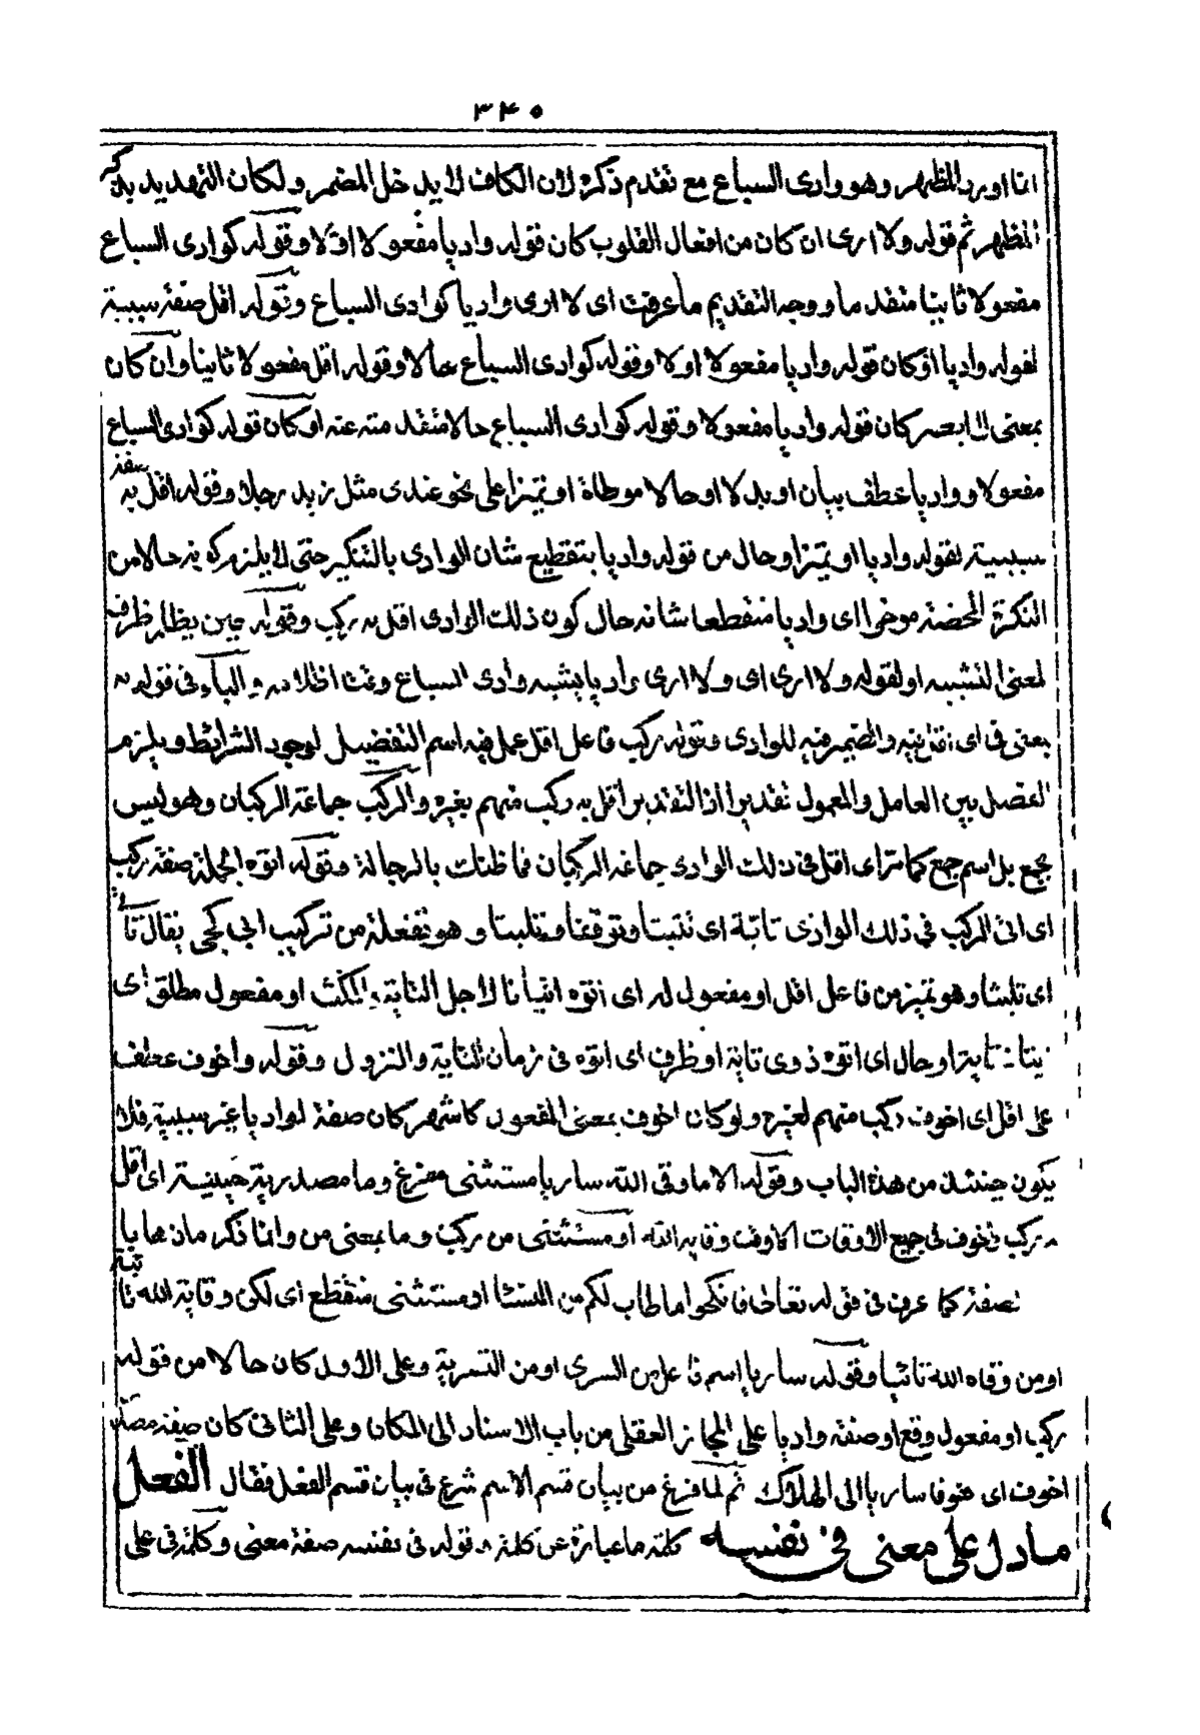 ٣٤٥
انما اورد المظهر وهو وادى السباع مع تقدم ذكره لان الكاف لا يدخل المضمر ولكان التهديد بذكر
المظهر ثم قوله ولا ارى ان كان من افعال القلوب كان قوله واديا مفعولا اولا وقوله كوادى السباع
مفعولا ثانيا متقدما ووجه التقديم ما عرفت اى لا ارى واديا كوادى السباع وقوله اقل صفة سببية
لقوله واديا او كان قوله واديا مفعولا اولا وقوله كوادى السباع حالا وقوله اقل مفعولا ثانيا وان كان
بمعنى ابصر كان قوله واديا مفعولا وقوله كوادى السباع حالا متقدمة عنه او كان قوله كوادى السباع
مفعولا وواديا عطف بيان او بدلا او حالا موطأة او تميزا على نحو عندى مثل زيد رجلا وقوله اقل به صفة
سببية لقوله واديا او تميزا وحال من قوله واديا بتقطيع شان الوادى بالتنكير حتى لا يلزم كونه حالا من
النكرة المحضة موخرا اى واديا منقطعا شانه حال كون ذلك الوادى اقل به ركب وقوله حين يظلم ظرف
لمعنى التشبيه او لقوله ولا ارى اى ولا ارى واديا يشبه وادى السباع وقت اظلامه والباء فى قوله به
بمعنى فى اى اقل فيه والضمير فيه للوادى وقوله ركب فاعل اقل عمل فيه اسم التفضيل لوجود الشرائط ويلزم
الفصل بين العامل والمعمول تقديرا اذ التقدير اقل به ركب منهم بغيره والركب جماعة الركبان وهو ليس
بجمع بل اسم جمع كما مر اى اقل فى ذلك الوادى جماعة الركبان فما ظنك بالرجالة وقوله اتوه الجملة صفة ركب
اى اتى الركب فى ذلك الوادى تائية اى تثبتا وتوقفا وتلبثا وهو تفعلة من تركيب ايى كحى يقال تأيا
اى تلبثا وهو تميز من فاعل اقل او مفعول له اى اتوه اتيانا لاجل التاية والمكث او مفعول مطلق اى
اتيان تاية او حال اى اتوه ذوى تاية او ظرف اى اتوه فى زمان التاية والنزول وقوله واخوف عطف
على اقل اى اخوف ركب منهم لغيره ولو كان اخوف بمعنى المفعول كاشهر كان صفة لواديا غير سببية فلا
يكون حينئذ من هذا الباب وقوله الا ما وقى الله ساريا مستثنى مفرغ وما مصدرية حينية اى اقل
به ركب واخوف فى جميع الاوقات الا وقت وقاية الله او مستثنى من ركب وما بمعنى من وانما ذكر ما ذهابا
لصفته كما عرف فى قوله تعالى فانكحوا ما طاب لكم من النساء او مستثنى منقطع اى لكن وقاية الله ثابتة
او من وقاه الله تائبا وقوله ساريا اسم فاعل من السرى او من التسرية وعلى الاول كان حالا من قوله
ركب او مفعول وقع او صفة واديا على المجاز العقلى من باب الاسناد الى المكان وعلى الثانى كان صفة مصدر
اخوف اى خوفا ساريا الى الهلاك ثم لما فرغ من بيان قسم الاسم شرع فى بيان قسم الفعل فقال الفعل
ما دل على معنى فى نفسه كلمة ما عبارة عن كلمة وقوله فى نفسه صفة معنى وكلمة فى على